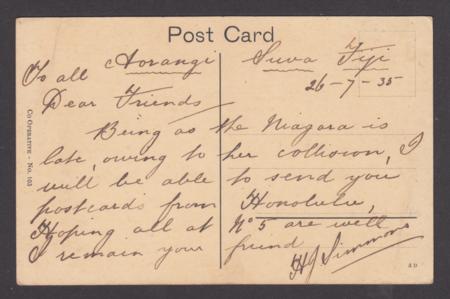 Post Card
Aorangi Suva Fiji
26-7-35
To all
Dear Friends
Being as the Niagara is
late, owing to her collision, I
will be able to send you
postcards from Honolulu,
Hoping all at No 5 are well
I remain your friend
HJ Simmons
Co Operative - No. 103